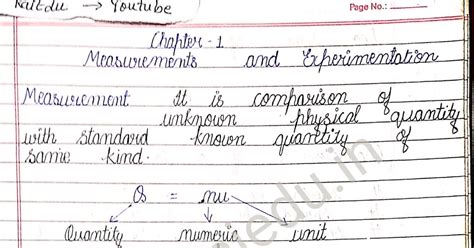 RajEdu → Youtube
Page No.:
Chapter-1
Measurements and Experimentation
Measurement It is comparison of
unknown physical quantity
with standard known quantity of
same kind.
Q = nu
Quantity numeric unit
edu.in